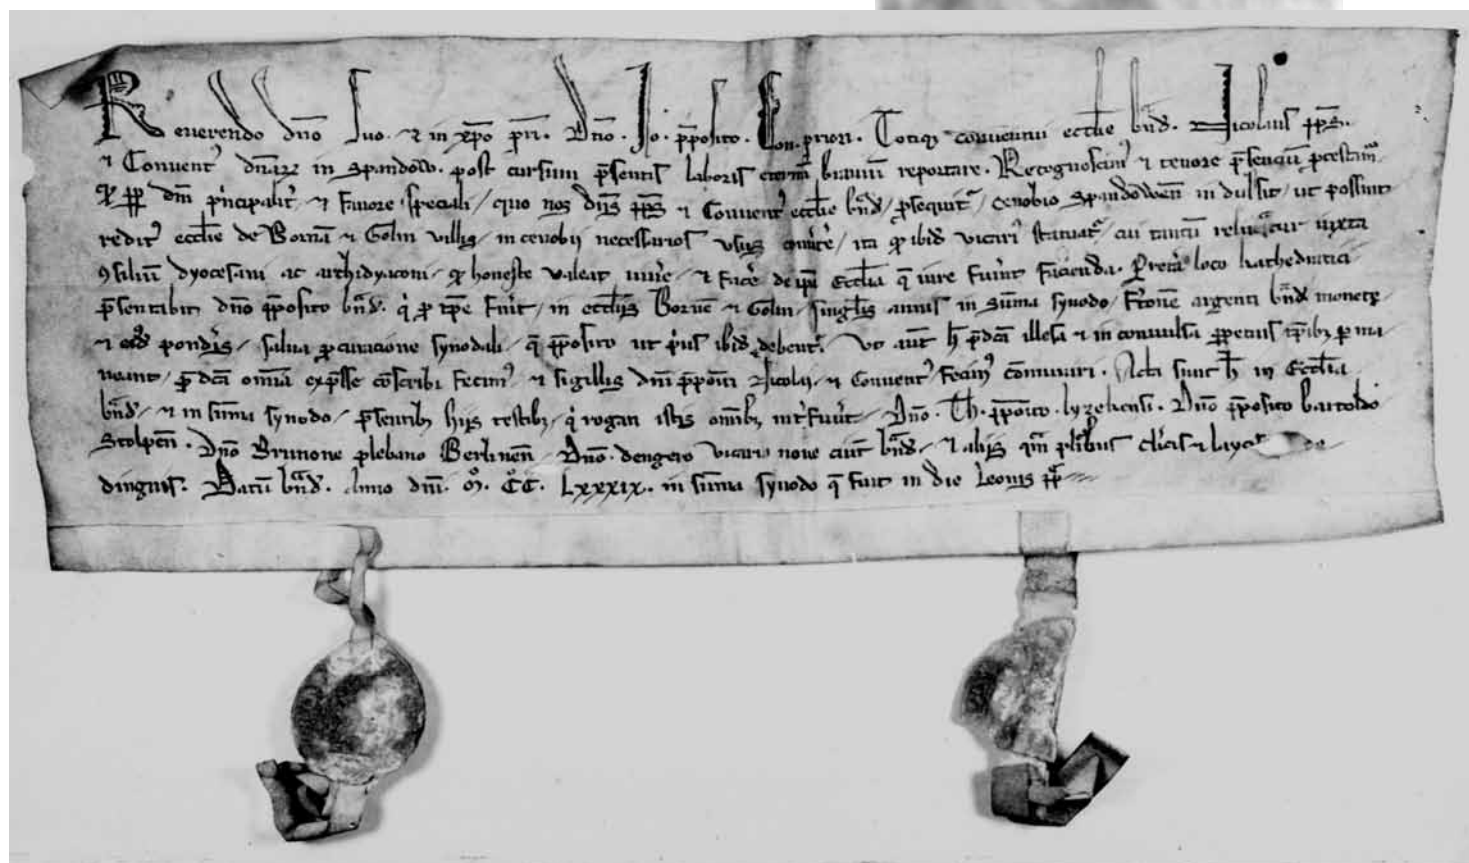 Reuerendo dn̄o suo · ⁊ in xp̄o pr̄i · Dn̄o · Jo · p̄posito · Con · priori · Totiq; conuentui eccl̄ie brād · Nicolaus p̄p̄s ·
⁊ Conuent᾽ dn̄arꝝ in Spandow · post cursum p̄sentis laboris et̄nū brauiū reportare · Recognoscim᾽ ⁊ tenore p̄sentiū p̄testam᾽
dn̄i p̄ncipalit᾽ ⁊ fauore speciali / quo nos dn̄s p̄p̄s ⁊ Conuent᾽ eccl̄ie brād / p̄sequit᾽ / cenobio Spandowen̄ indulsit / ut possint
redit᾽ eccl̄ie de Bornē ⁊ Golin villis / in cenobii necessarios usus / ita ꝙ ibid᾽ vicari᾽ statuat᾽ / cui tantū relinquatur iuxta
ꝯsiliū dyocesani ac archidyaconi / ꝙ honeste ualeat uiu᾽e / ⁊ fac᾽e de ip̄a eccl̄ia q̄ iure fu᾽int facienda · Pret᾽a loco kathedratici
p̄sentabit dn̄o p̄posito brād · q̇ pro tp̄e fu᾽it / in eccl̄iis Bornē ⁊ Golin / singlis annis in sūma synodo / f᾽tonē argenti brād monete /
⁊ ei᾽d᾽ pond᾽is / salua p̄curacione synodali / q̄ p̄posito ut p᾽us ibid᾽ debent᾽ · Ut aut̄ h̄ p̄dc̄a illesa ⁊ in conuulsa p̄petuis tp̄ib; p̄ma-
neant / p̄dc̄a om̄ia exp̄sse cōscribi fecim᾽ ⁊ sigillis dn̄i p̄positi Nicolai ⁊ Conuent᾽ / fecim᾽ cōmuniri · Acta sunt h̄ in Eccl̄ia
brād / ⁊ in sūma synodo / p̄sentib; hijs testib; / q̇ rogati istis om̄ib; int᾽fu᾽unt / Dn̄o · Th · p̄posito · lyzekensi · Dn̄o p̄posito bartoldo
Stolpen̄ · Dn̄o Brunone plebano Berlinen̄ / Dn̄o · dengero vicario noue ciuit̄ brād / ⁊ alijs q̄m plurib᾽ cl᾽icis ⁊ layc᾽ de
dingnis · Datū brād · Anno dn̄i · m̊ · c̊c̊ · Lxxxix · in sūma synodo q̄ fuit in die Leonis p̄p̄